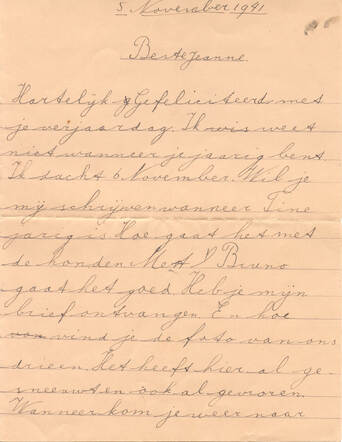 5 November 1941
Beste Jeanne.
Hartelijk Gefeliciteerd met
je verjaardag. Ik wis weet
niet wanneer je jaarig bent.
Ik dacht 6 November. Wil je
mij schrijven wanneer Tine
jarig is Hoe gaat het met
de honden Met Bruno
gaat het goed. Heb je mijn
brief ontvangen. En hoe
von vind je de foto van ons
drieen. Het heeft hier al ge-
sneeuwt en ook al gevroren.
Wanneer kom je weer naar